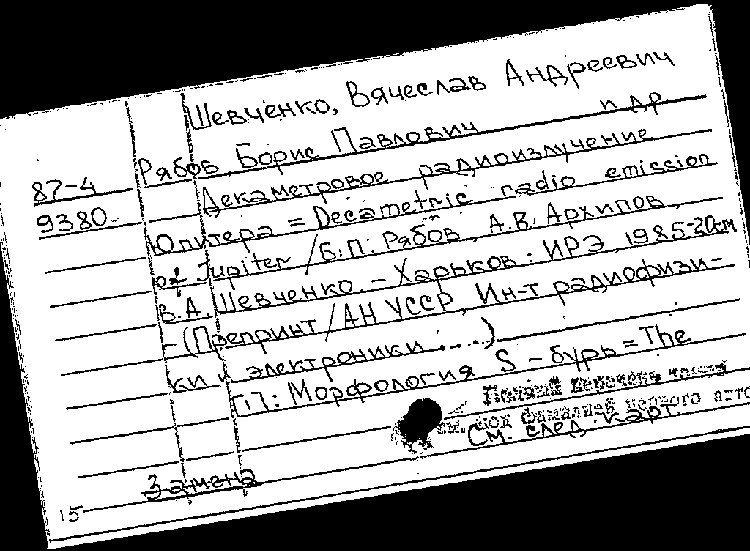 Шевченко, Вячеслав Андреевич
87-4
9380-
Рябов, Борис Павлович и др
Декаметровое радиоизлучение
Юпитера = Decametric radio emission
of Jupiter / Б.П. Рябов, А.В. Архипов,
В.А. Шевченко. - Харьков: ИРЭ, 1985-20см
- (Препринт / АН УССР, Ин-т радиофизи-
ки и электроники; ...)
[1]: Морфология S - бурь = The
Полный перечень
см. под фамилией первого авто
См. след. карт.
Замена
15